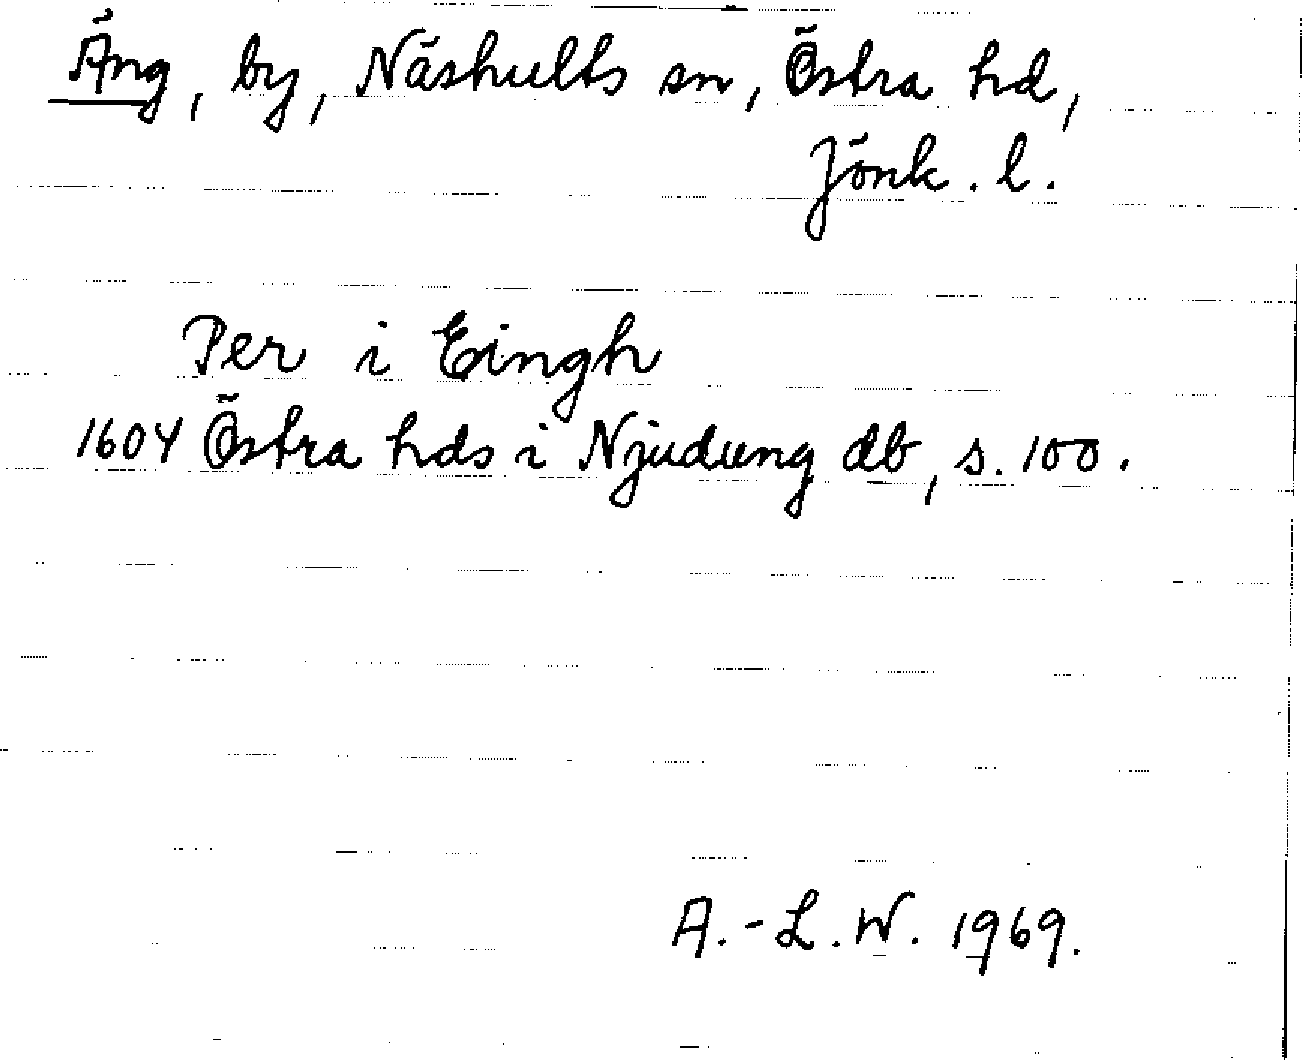 Äng, by, Näshults sn, Östra hd,
Jönk. l.
Per i Eingh
1604 Östra hds i Njudung db, s. 100.
A.-L.W. 1969.